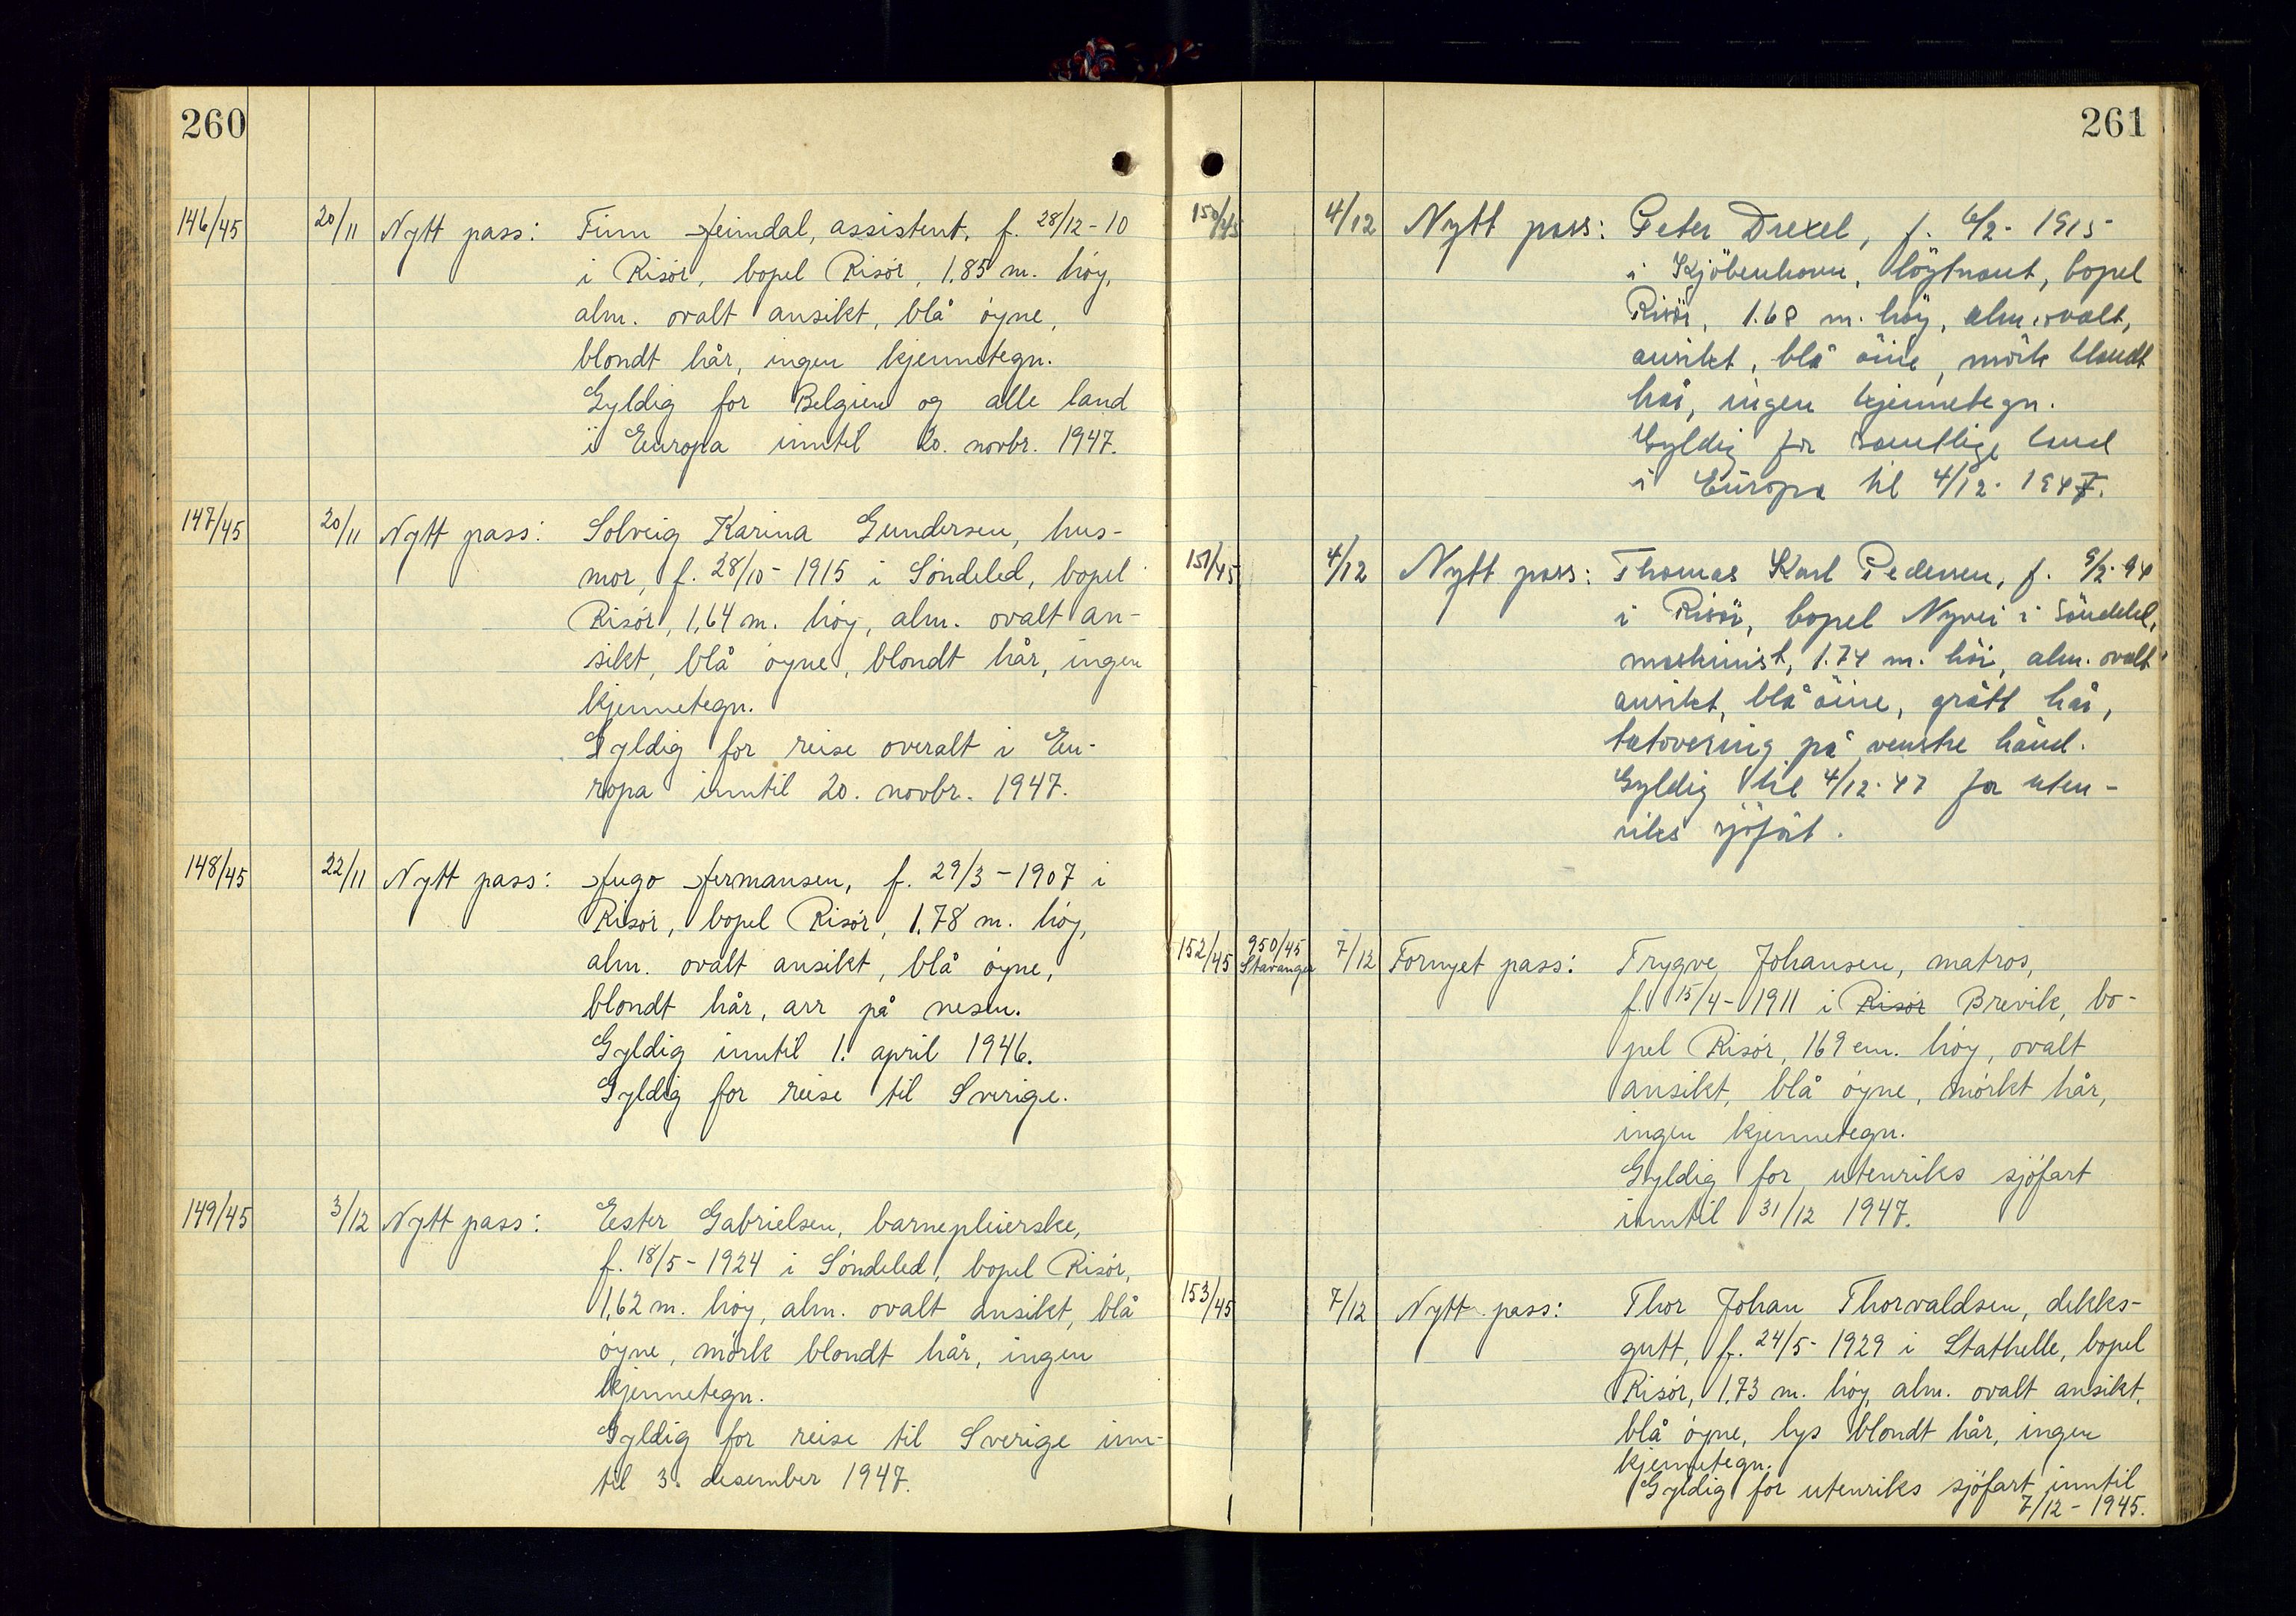 260
146/45 20/11 Nytt pass: Finn Heimdal, assistent, f. 28/12-10
i Risör, bopel Risör, 1,85 m. höy,
alm. ovalt ansikt, blå öyne,
blondt hår, ingen kjennetegn.
Gyldig for Belgien og alle land
i Europa inntil 20. novbr. 1947.
147/45 20/11 Nytt pass: Solveig Karina Gundersen, hus-
mor, f. 28/10-1915 i Söndeled, bopel
Risör, 1,64 m. höy, alm. ovalt an-
sikt, blå öyne, blondt hår, ingen
kjennetegn.
Gyldig for reise overalt i Eu-
ropa inntil 20. novbr. 1947.
148/45 22/11 Nytt pass: Hugo Hermansen, f. 29/3-1907 i
Risör, bopel Risör, 1,78 m. höy,
alm. ovalt ansikt, blå öyne,
blondt hår, arr på nesen.
Gyldig inntil 1. april 1946.
Gyldig for reise til Sverige.
149/45 3/12 Nytt pass: Ester Gabrielsen, barnepleierske,
f. 18/5-1924 i Söndeled, bopel Risör,
1,62 m. höy, alm. ovalt ansikt, blå
öyne, mörk blondt hår, ingen
kjennetegn.
Gyldig for reise til Sverige inn-
til 3. desember 1947.
261
150/45 4/12 Nytt pass: Peter Drexel, f. 6/2-1915
i Kjöbenhavn, löytnant, bopel
Risör, 1.68 m. höy, alm. ovalt,
ansikt, blå öine, mörk blondt
hår, ingen kjennetegn.
Gyldig for samtlige land
i Europa til 4/12-1947.
151/45 4/12 Nytt pass: Thomas Karl Pedersen, f. 9/2-94
i Risör, bopel Nyvei i Söndeled,
maskinist, 1.74 m. höi, alm. ovalt
ansikt, blå öine, grått hår,
tatovering på venstre hånd.
Gyldig til 4/12-47 for uten-
riks sjöfart.
152/45 950/45 Stavanger 7/12 Fornyet pass: Trygve Johansen, matros,
f. 15/4-1911 i Risör Brevik, bo-
pel Risör, 169 cm. höy, ovalt
ansikt, blå öyne, mörkt hår,
ingen kjennetegn.
Gyldig for utenriks sjöfart
inntil 31/12 1947.
153/45 7/12 Nytt pass: Thor Johan Thorvaldsen, dekks-
gutt, f. 24/5-1929 i Stathelle, bopel
Risör, 1,73 m. höy, alm. ovalt ansikt,
blå öyne, lys blondt hår, ingen
kjennetegn.
Gyldig for utenriks sjöfart inntil
7/12-1945.